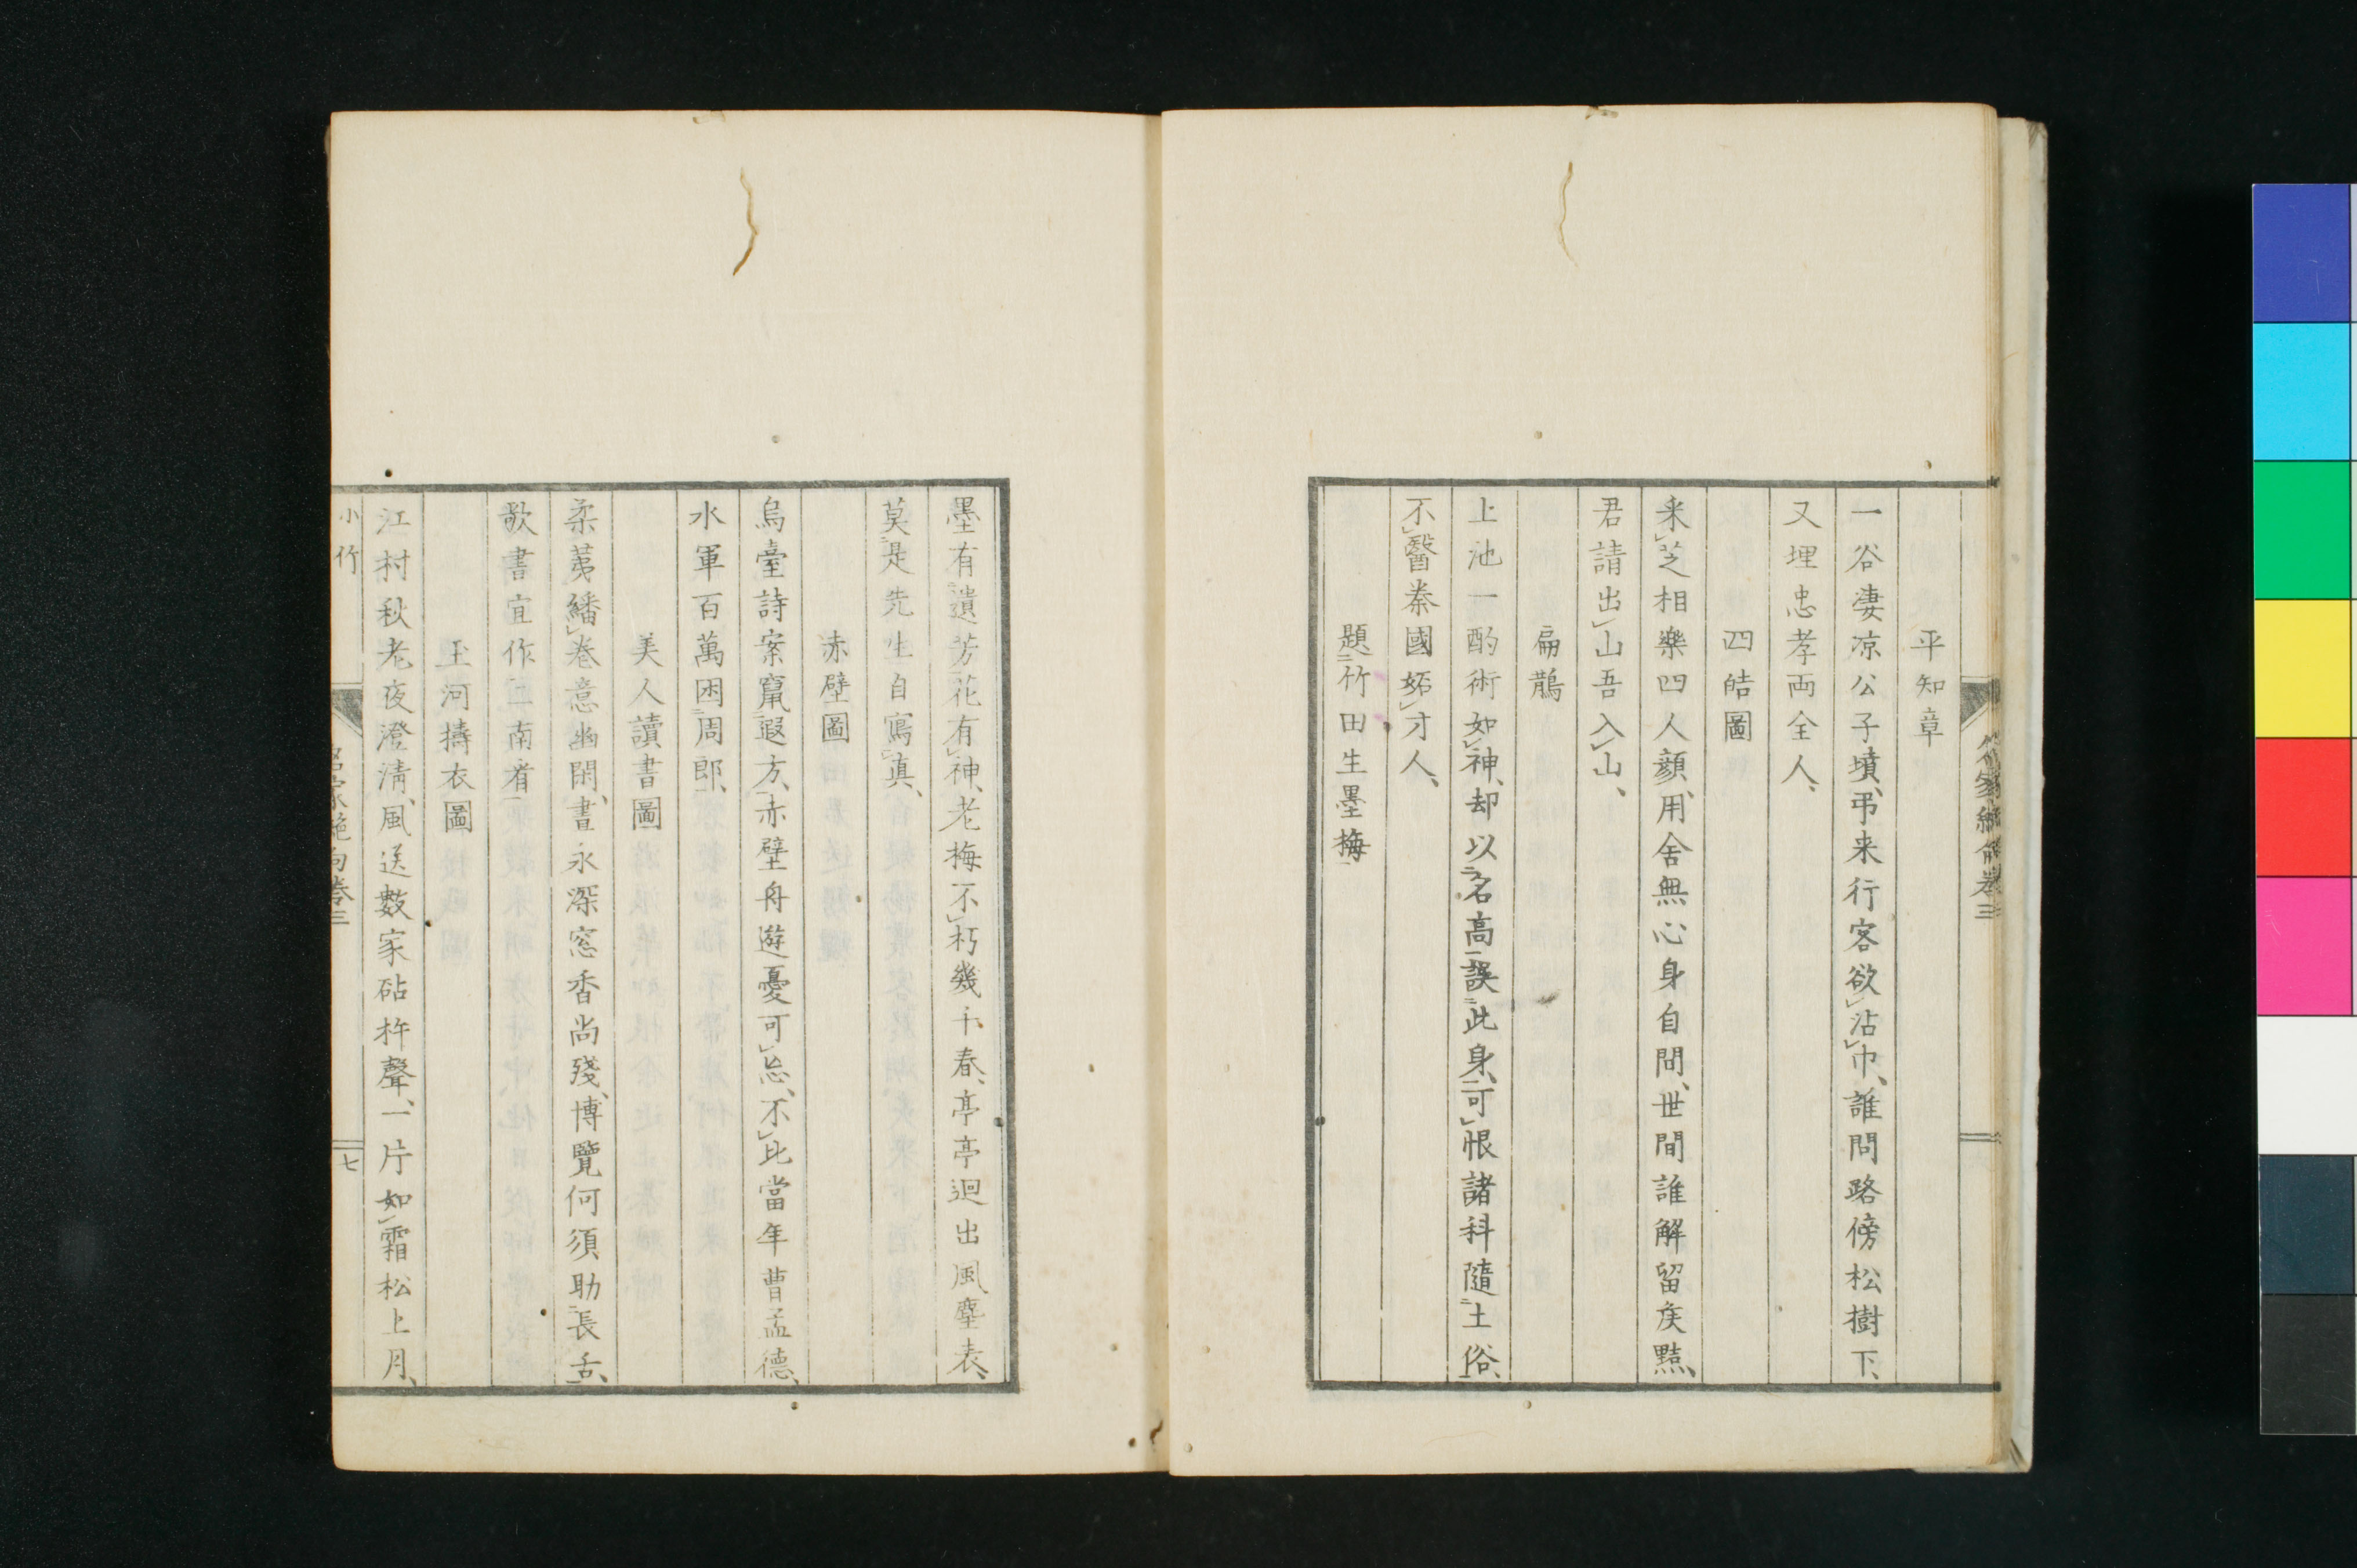 平知章
一谷淒凉公子墳、弔来行客欲沾巾、誰問路傍松樹下、
又埋忠孝両全人、
四皓圖
来芝相樂四人顔、用舍無心身自閒、世間誰解留矦黠、
君請出山吾入山、
扁鵲
上池一酌術如神、却以名高誤此身、可恨諸科隨土俗、
不醫秦國妬才人、
題竹田生墨梅
墨有遺芳花有神、老梅不朽幾千春、亭亭迥出風塵表、
莫是先生自寫真、
赤壁圖
烏臺詩案竄遐方、赤壁舟遊憂可忘、不比當年曹孟德、
水軍百萬困周郎、
美人讀書圖
柔荑繙巻意幽閑、晝永深窓香尚殘、博覽何須助長舌、
歌書宜作二南看
玉河擣衣圖
江村秋老夜澄清、風送數家砧杵聲、一片如霜松上月、
小竹
名家絶句巻三
七